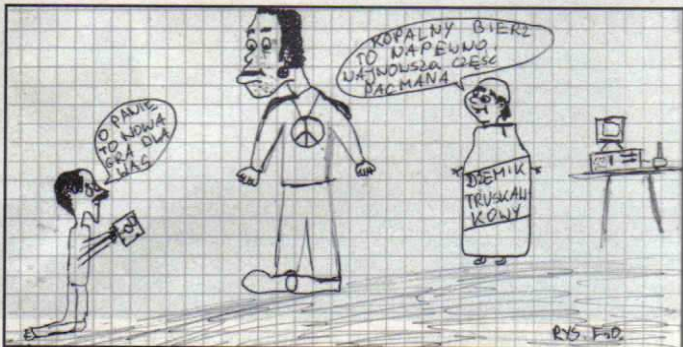 O PANIE
TO NOWA
GRA DLA
WAS
KOPALNY BIERZ
TO NAPEWNO
NAJNOWSZA CZĘŚĆ
PACMANA
DŻEMIK
TRUSKAW
KOWY
RYS.